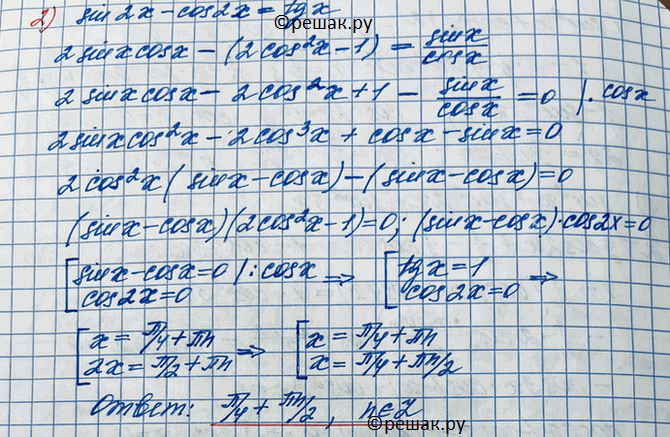 ©решак.ру
2) sin2x-cos2x = tg x
2 sinx cosx - (2cos²x-1) = sinx/cosx
2 sinx cosx - 2cos²x+1 - sinx/cosx = 0 |· cosx
2sinxcos²x - 2cos³x + cosx - sinx = 0
2cos²x (sinx-cosx) - (sinx-cosx) = 0
(sinx-cosx)(2cos²x-1)=0; (sinx-cosx)·cos2x=0
[sinx-cosx=0 |:cosx ⇒ [tgx=1
cos2x=0 cos2x=0 ⇒
[x = π/4+πn ⇒ [x = π/4+πn
2x = π/2+πn x = π/4+πn/2
Ответ: π/4 + πn/2, n∈Z
©решак.ру